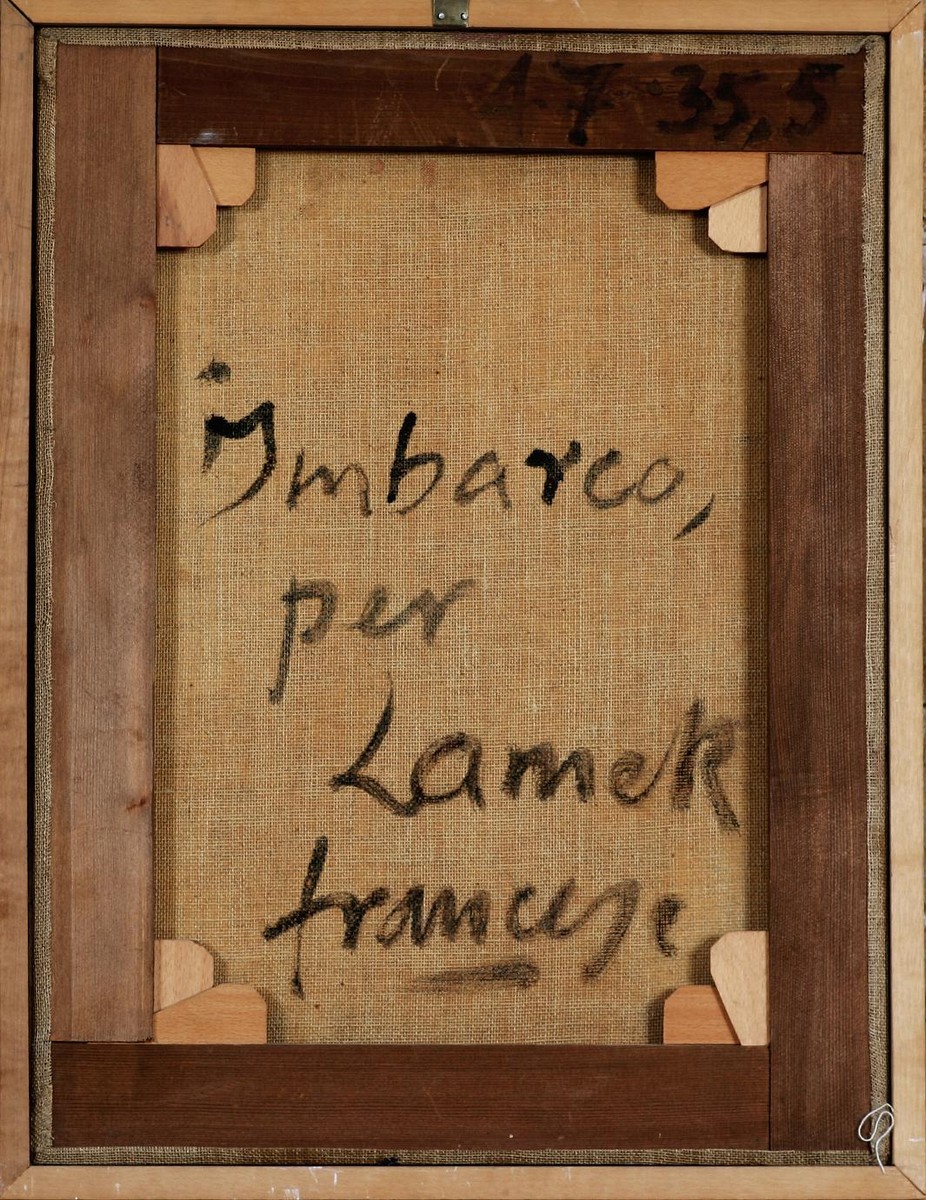 47 35,5
Imbarco,
per
Lamek
francese